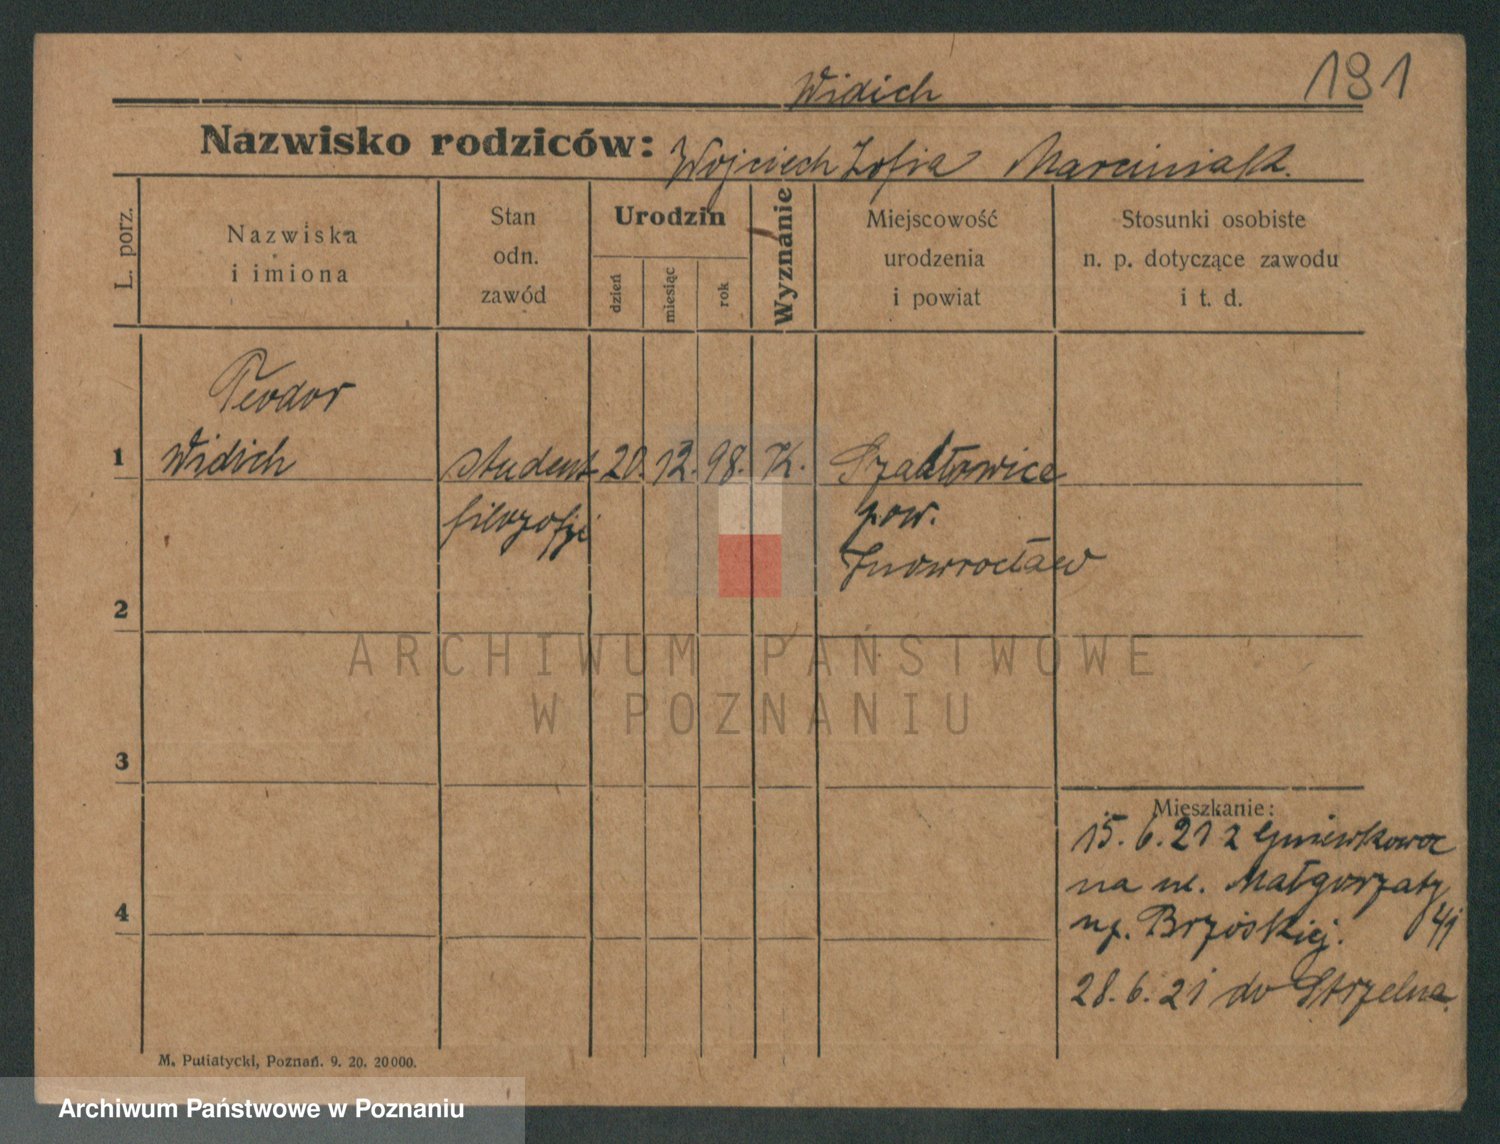 181
Widich
Nazwisko rodziców: Wojciech Zofia Marciniak.
L. porz.
Nazwiska
i imiona
Stan
odn.
zawód
Urodzin
dzień
miesiąc
rok
Wyznanie
Miejscowość
urodzenia
i powiat
Stosunki osobiste
n. p. dotyczące zawodu
i t. d.
Teodor
1 Widich student 20. 12. 98. K. Szadłowice
filozofji pow.
Inowrocław
2
3
4
Mieszkanie:
15. 6. 21 z Gniewkowa
na ul. Małgorzaty
up. Brzóskiej.
28. 6. 21 do Strzelna.
M. Putiatycki, Poznań. 9. 20. 20000.
ARCHIWUM PAŃSTWOWE
W POZNANIU
Archiwum Państwowe w Poznaniu